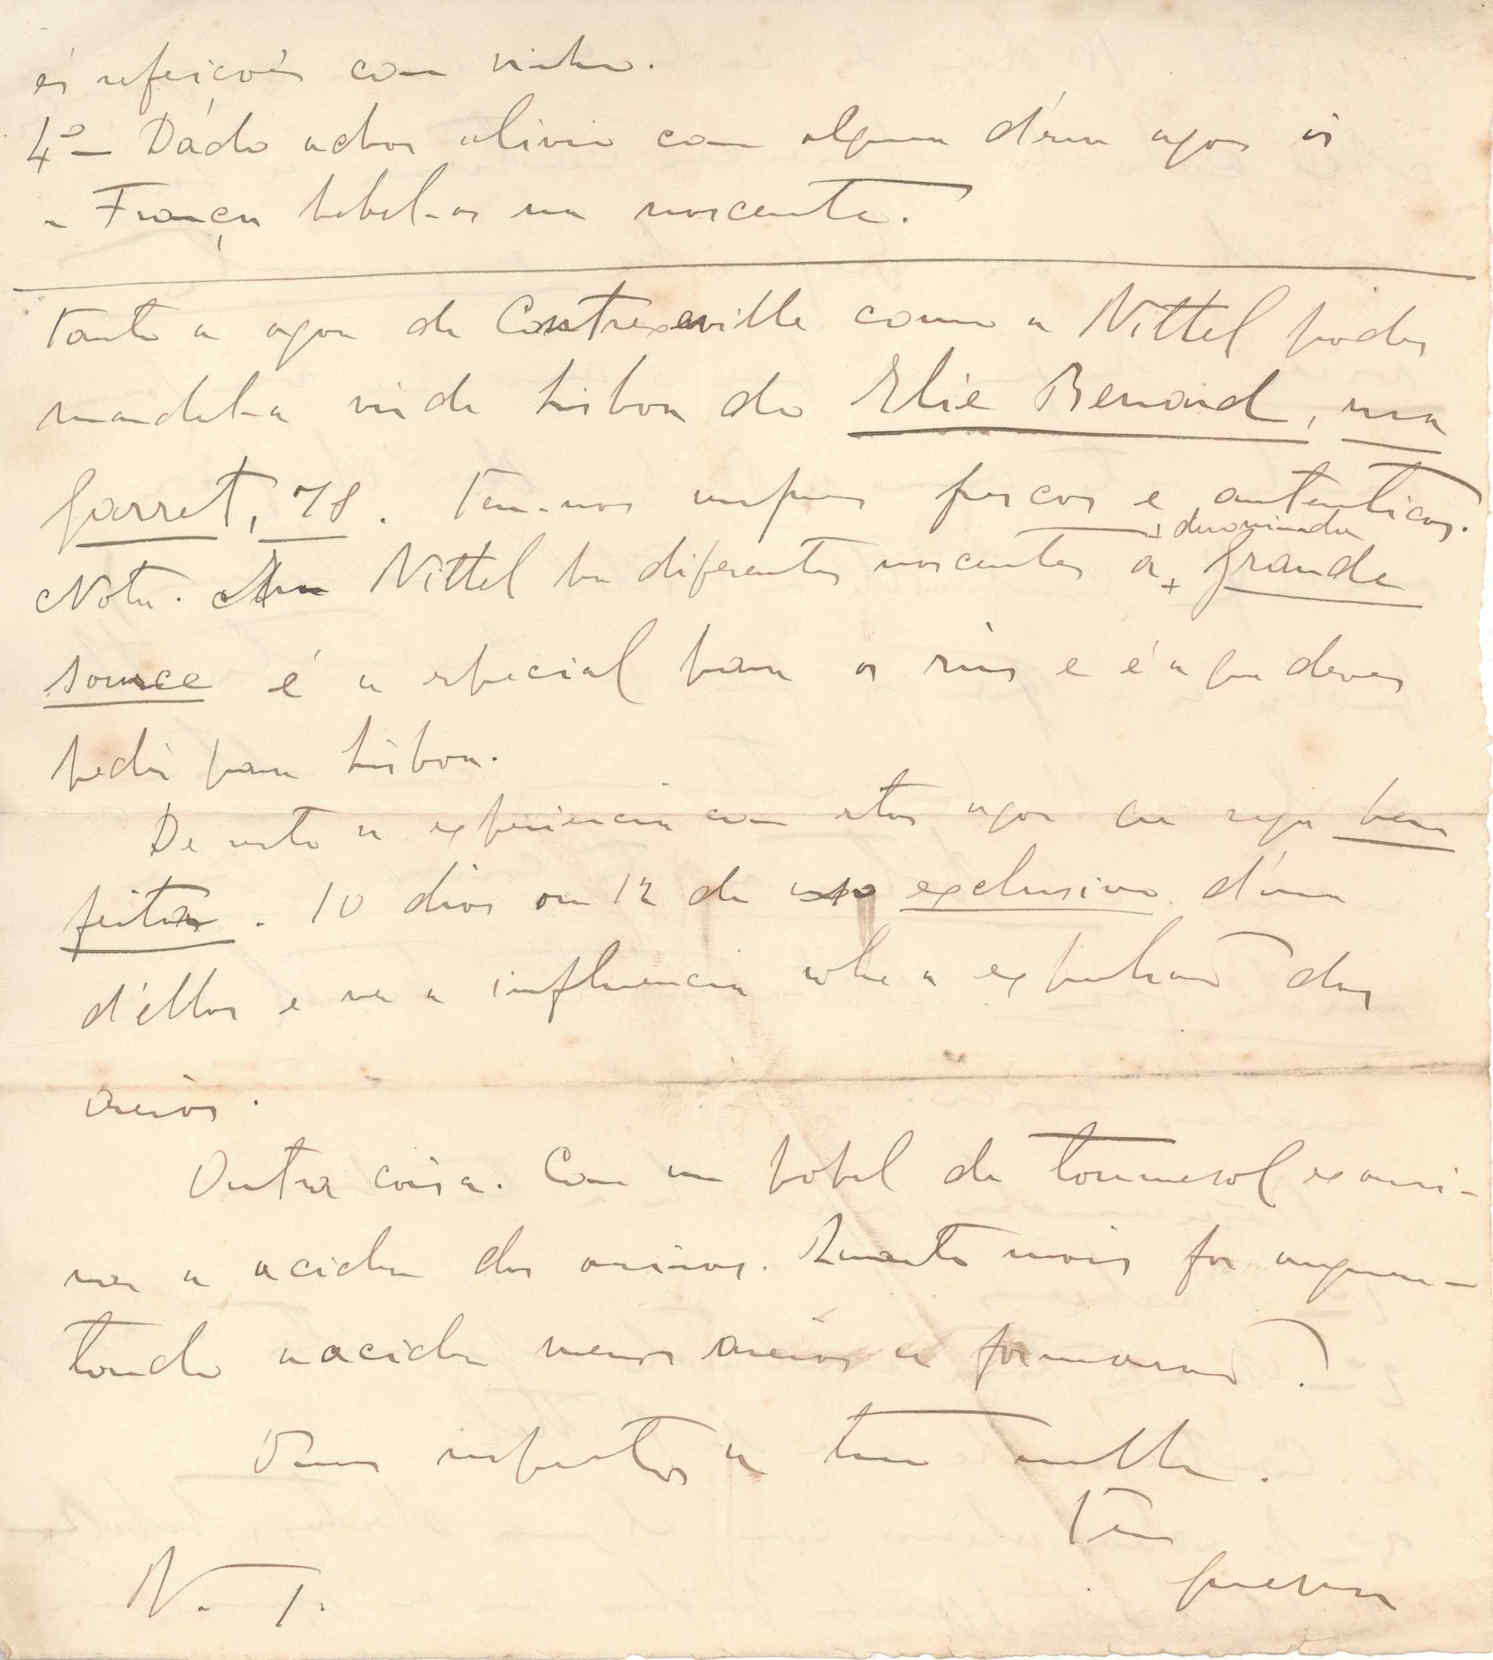 ás refeições com vinho.
4º – Dado achar alivio com alguma d'essas agoas ir
a França bebel-as na nascente.
Tanto a agoa de Contrexeville como a Vittel podes
mandal-a vir de Lisboa do Elie Benard, rua
Garret, 78. Tem-nas sempre frescas e autenticas.
Nota. Em Vittel ha diferentes nascentes a + grande
+ denominada
source é a especial para os rins e é a que deves
pedir para Lisboa.
De resto a experiencia com estas agoas que seja bem
feita. 10 dias ou 12 de uso exclusivo d'uma
d'ellas e ver a influencia sobre a expulsão das
areias.
Outra coisa. Com um papel de tournesol exami-
nar a acidez das ourinas. Quanto mais for augmen-
tando a acidez menos areias se formarão?
Meus respeitos a tua mulher.
Teu
N. T.